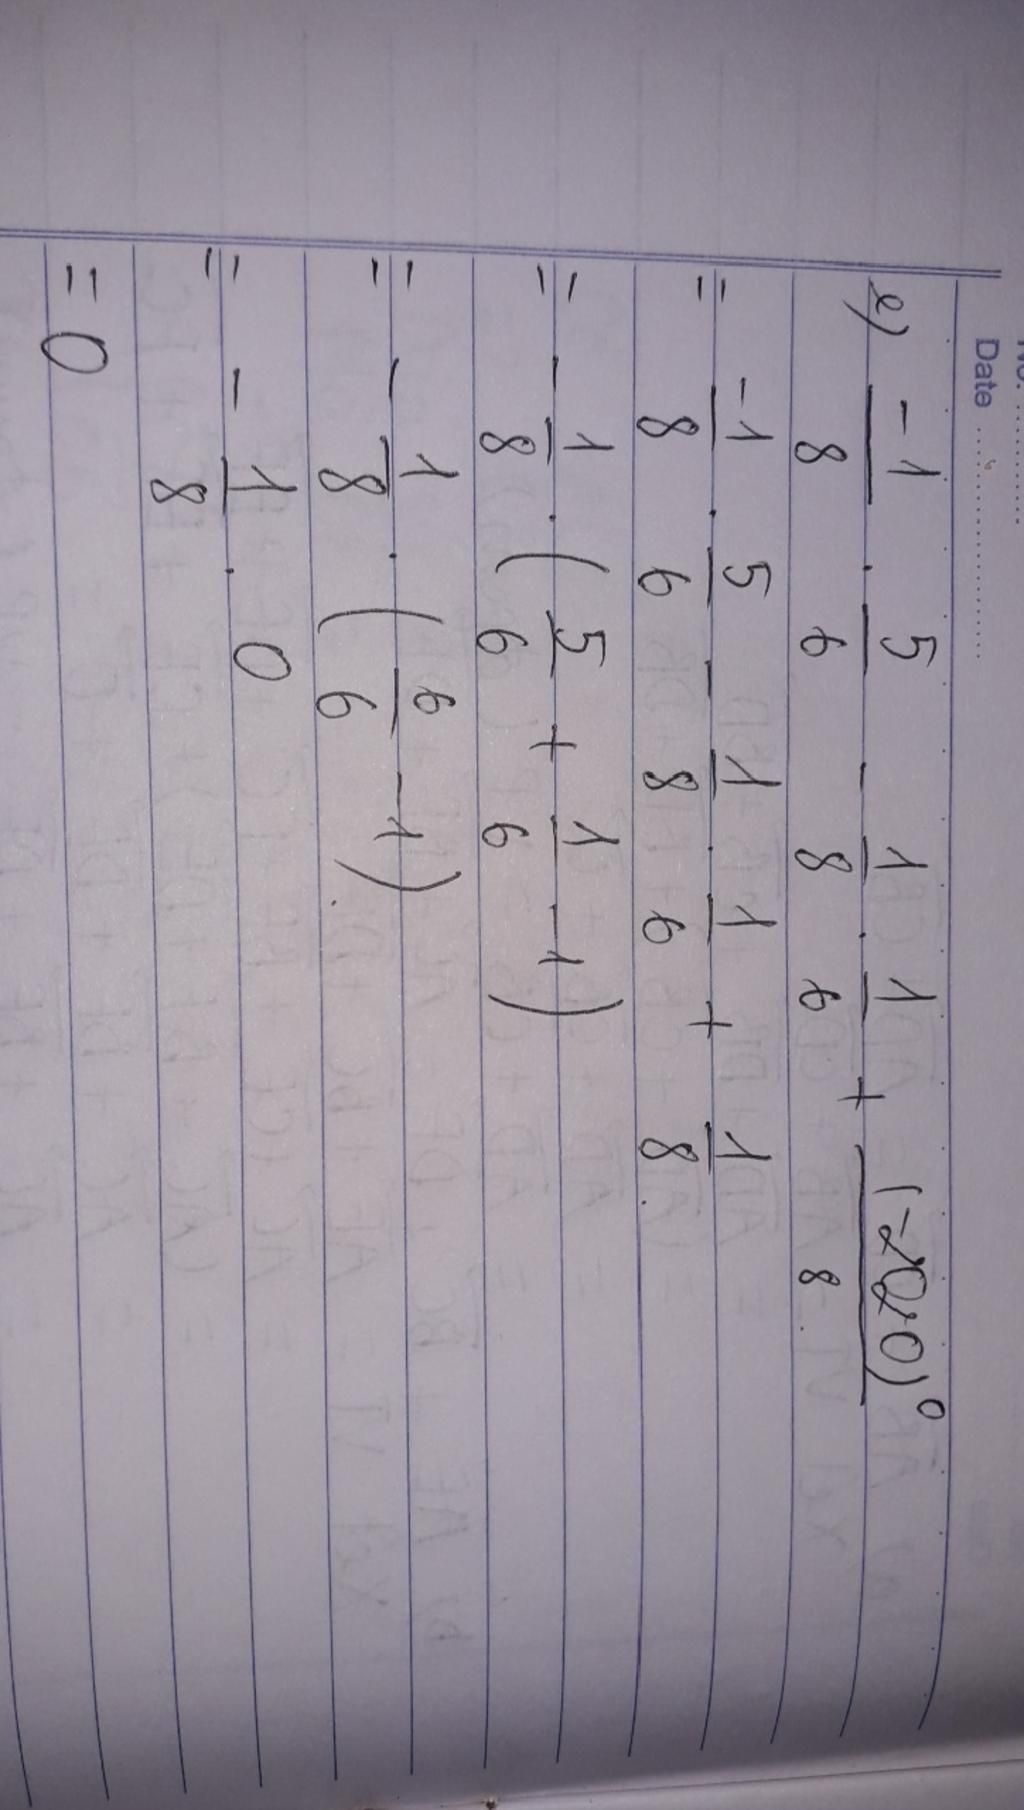 No. ............
Date ........................
e) -1/8 . 5/6 - 1/8 . 1/6 + (-2020)⁰/8
= -1/8 . 5/6 - 1/8 . 1/6 + 1/8
= - 1/8 . ( 5/6 + 1/6 - 1 )
= - 1/8 . ( 6/6 - 1 )
= - 1/8 . 0
= 0